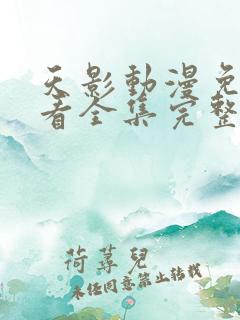 天影動漫免
看全集完整
荷蕁兒
未经同意禁止转载